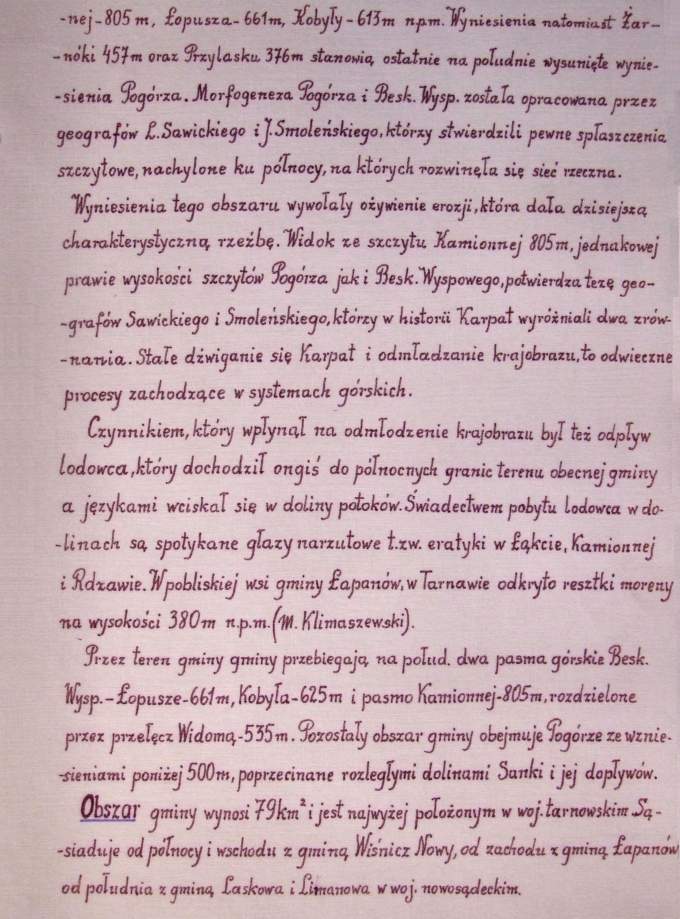 -nej-805 m, Łopusza-661m, Kobyły-613m n.p.m. Wyniesienia natomiast Żar-
-nóki 457m oraz Przylasku 376m stanowią ostatnie na południe wysunięte wynie-
-sienia Pogórza. Morfogeneza Pogórza i Besk. Wysp. została opracowana przez
geografów L. Sawickiego i J. Smoleńskiego, którzy stwierdzili pewne spłaszczenia
szczytowe, nachylone ku północy, na których rozwinęła się sieć rzeczna.
Wyniesienia tego obszaru wywołały ożywienie erozji, która dała dzisiejszą
charakterystyczną rzeźbę. Widok ze szczytu Kamionnej 805m, jednakowej
prawie wysokości szczytów Pogórza jak i Besk. Wyspowego, potwierdza tezę geo-
-grafów Sawickiego i Smoleńskiego, którzy w historii Karpat wyróżniali dwa zrów-
-nania. Stałe dźwiganie się Karpat i odmładzanie krajobrazu, to odwieczne
procesy zachodzące w systemach górskich.
Czynnikiem, który wpłynął na odmłodzenie krajobrazu był też odpływ
lodowca, który dochodził ongiś do północnych granic terenu obecnej gminy
a językami wciskał się w doliny potoków. Świadectwem pobytu lodowca w do-
-linach są spotykane głazy narzutowe t.zw. eratyki w Łąkcie, Kamionnej
i Rdzawie. W pobliskiej wsi gminy Łapanów, w Tarnawie odkryto resztki moreny
na wysokości 380m n.p.m. (M. Klimaszewski).
Przez teren gminy gminy przebiegają na połud. dwa pasma górskie Besk.
Wysp. - Łopusze-661m, Kobyła-625m i pasmo Kamionnej-805m, rozdzielone
przez przełęcz Widomą-535m. Pozostały obszar gminy obejmuje Pogórze ze wznie-
-sieniami poniżej 500m, poprzecinane rozległymi dolinami Sanki i jej dopływów.
Obszar gminy wynosi 79km² i jest najwyżej położonym w woj. tarnowskim Są-
-siaduje od północy i wschodu z gminą Wiśnicz Nowy, od zachodu z gminą Łapanów
od południa z gminą Laskowa i Limanowa w woj. nowosądeckim.